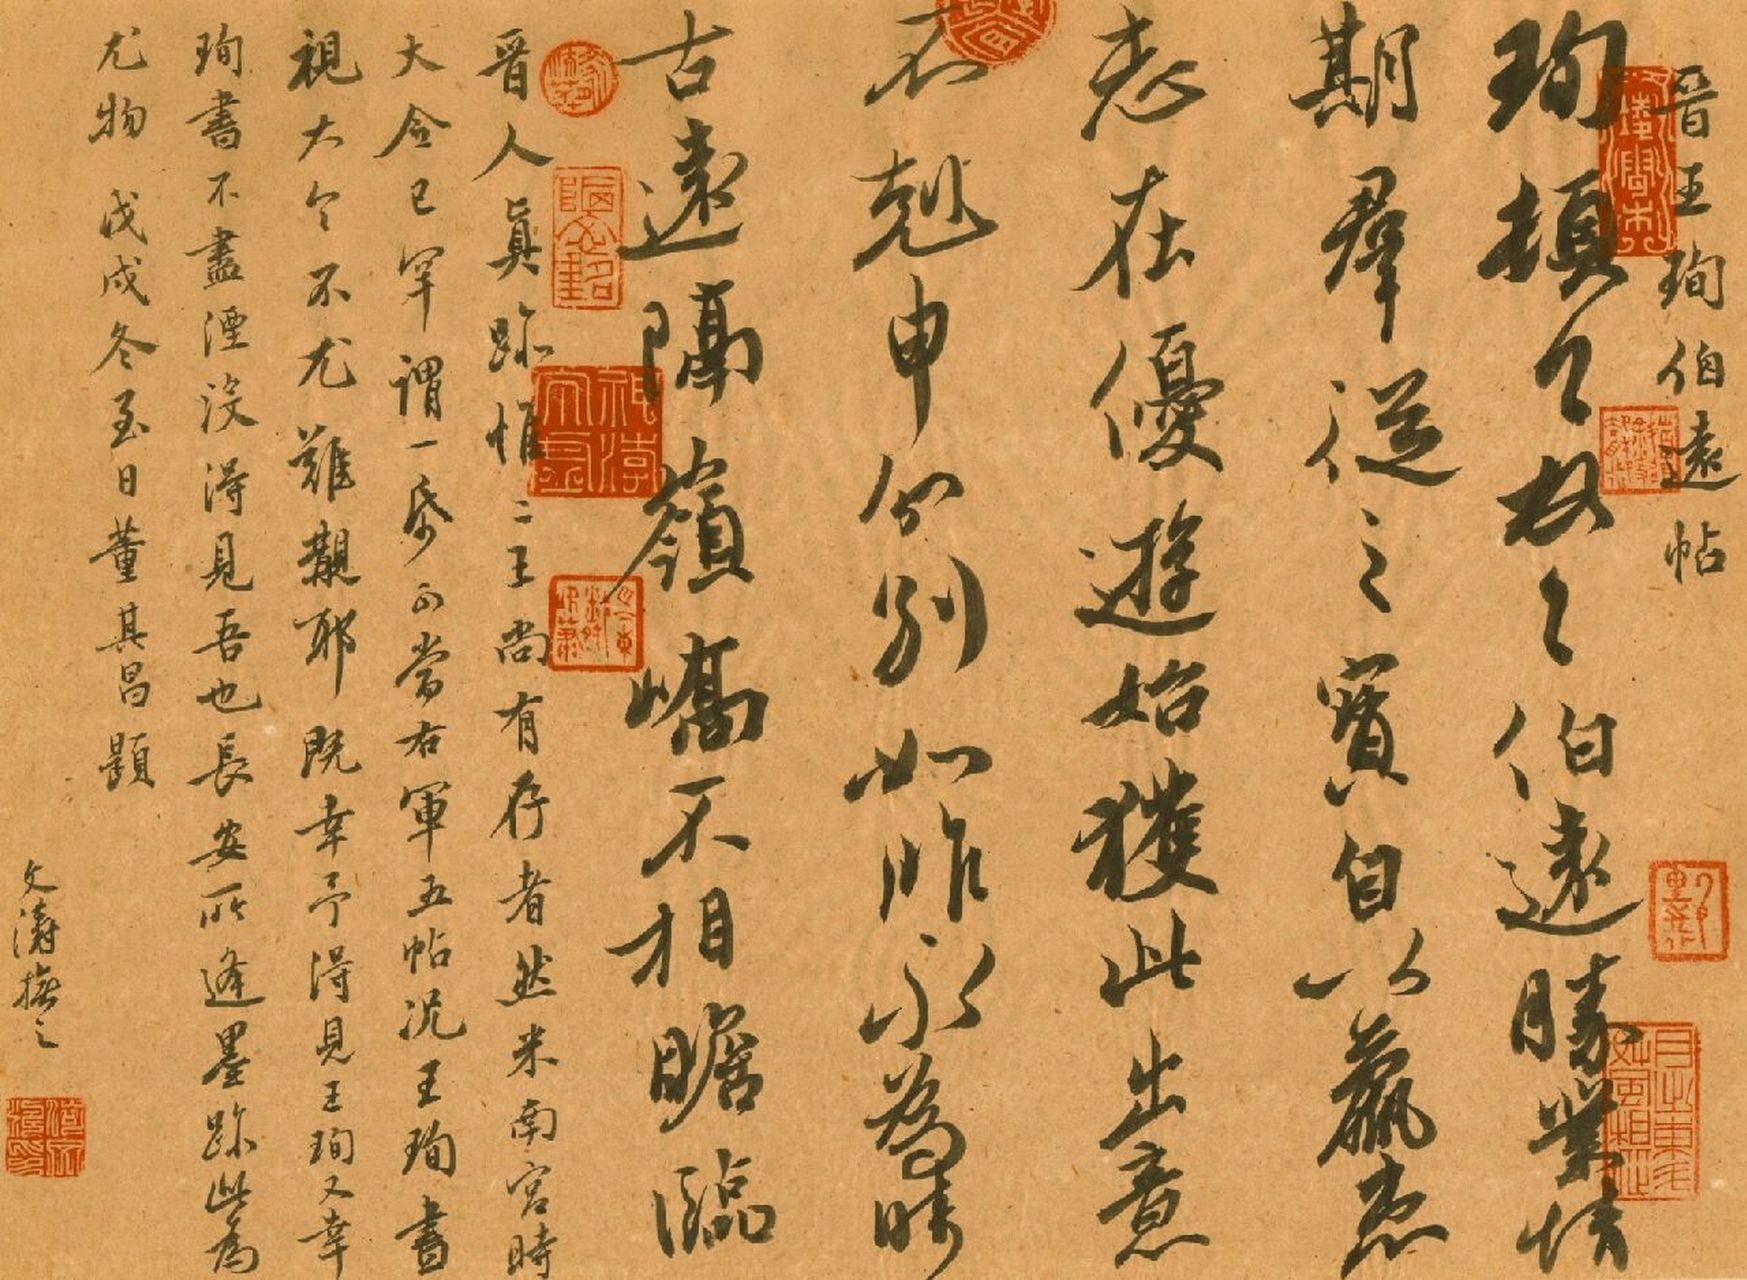 晋王珣伯遠帖
珣頓々首々伯遠勝業情
期羣從之寶自以羸患
志在優遊始獲此出意
不剋申分別如昨永為疇
古遠隔嶺嶠不相瞻臨
晋人眞跡惟二王尚有存者然米南宮時
大令已罕謂一帋可當右軍五帖況王珣書
視大令不尤難覯耶既幸予得見王珣又幸
珣書不盡湮沒得見吾也長安所逢墨跡此為
尤物 戊戌冬至日董其昌題
文濤撫之